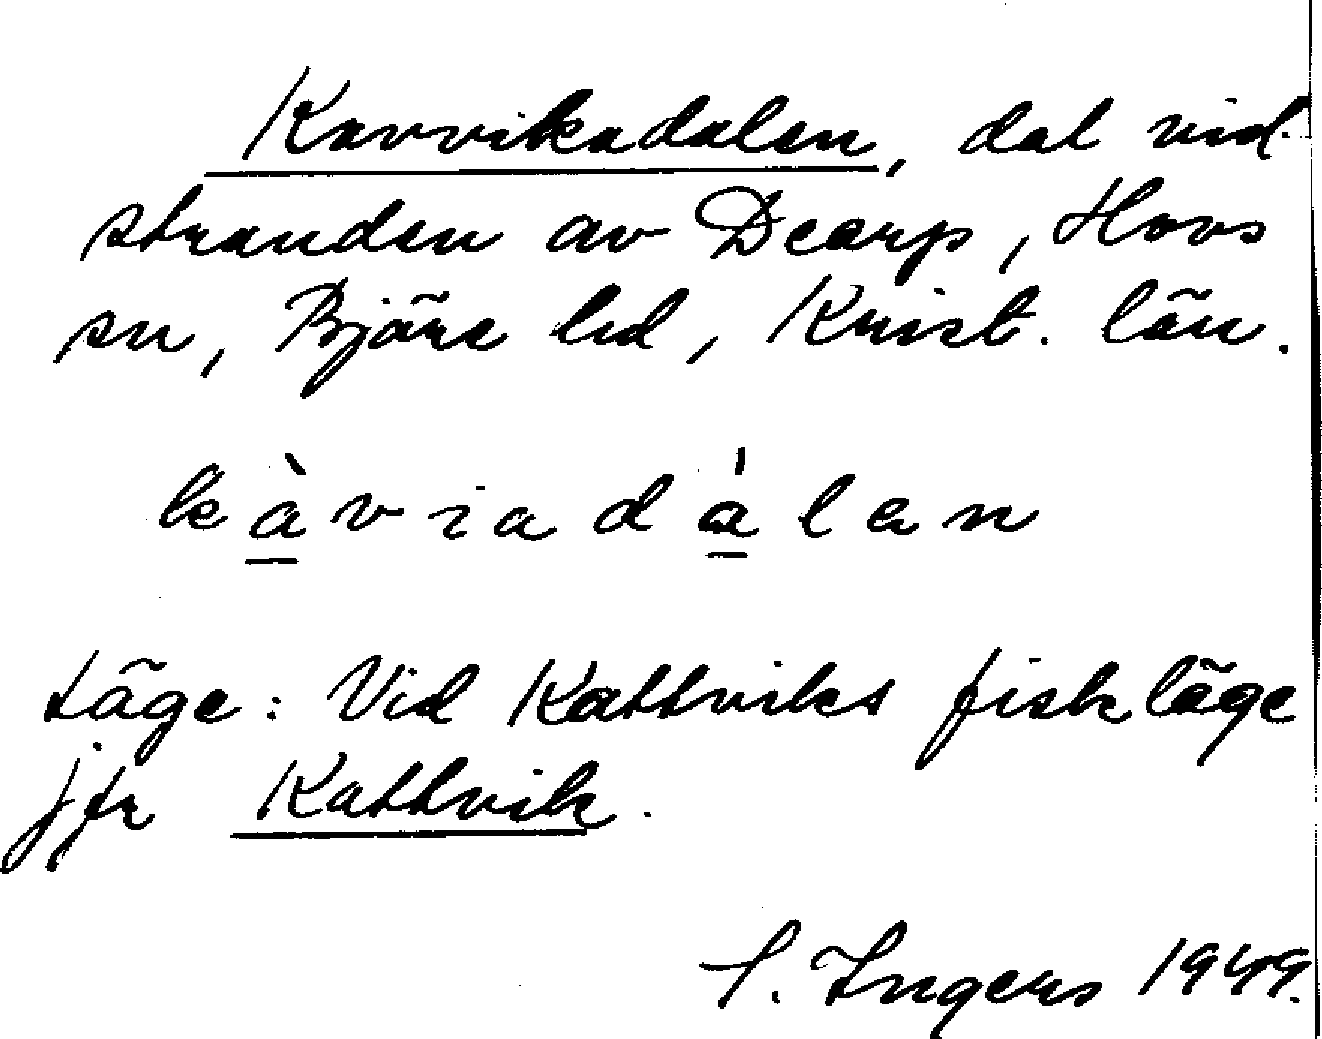 Kavvikadalen, dal vid
stranden av Dearp, Hovs
sn, Bjäre hd, Krist. län.
kàviadálan
Läge: Vid Kattviks fiskläge
jfr Kattvik.
I. Ingers 1949.